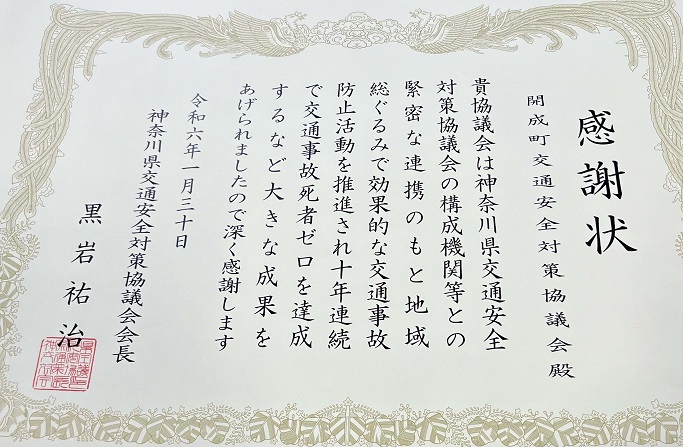 感謝状
開成町交通安全対策協議会殿
貴協議会は神奈川県交通安全
対策協議会の構成機関等との
緊密な連携のもと地域
総ぐるみで効果的な交通事故
防止活動を推進され十年連続
で交通事故死者ゼロを達成
するなど大きな成果を
あげられましたので深く感謝します
令和六年一月三十日
神奈川県交通安全対策協議会会長
黒岩祐治